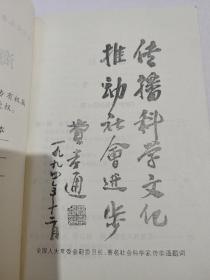 传播科学文化
推动社會進步
費孝通
一九九四年十二月
全国人大常委会副委员长、著名社会科学家费孝通题词